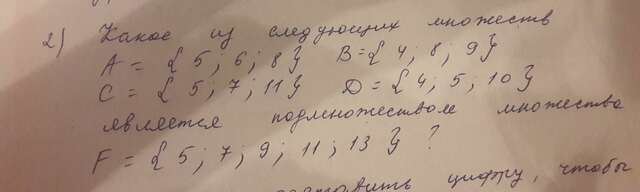 2) Какое из следующих множеств
A = { 5 ; 6 ; 8 } B = { 4 ; 8 ; 9 }
C = { 5 ; 7 ; 11 } D = { 4 ; 5 ; 10 }
является подмножеством множества
F = { 5 ; 7 ; 9 ; 11 ; 13 } ?
цифру, чтобы